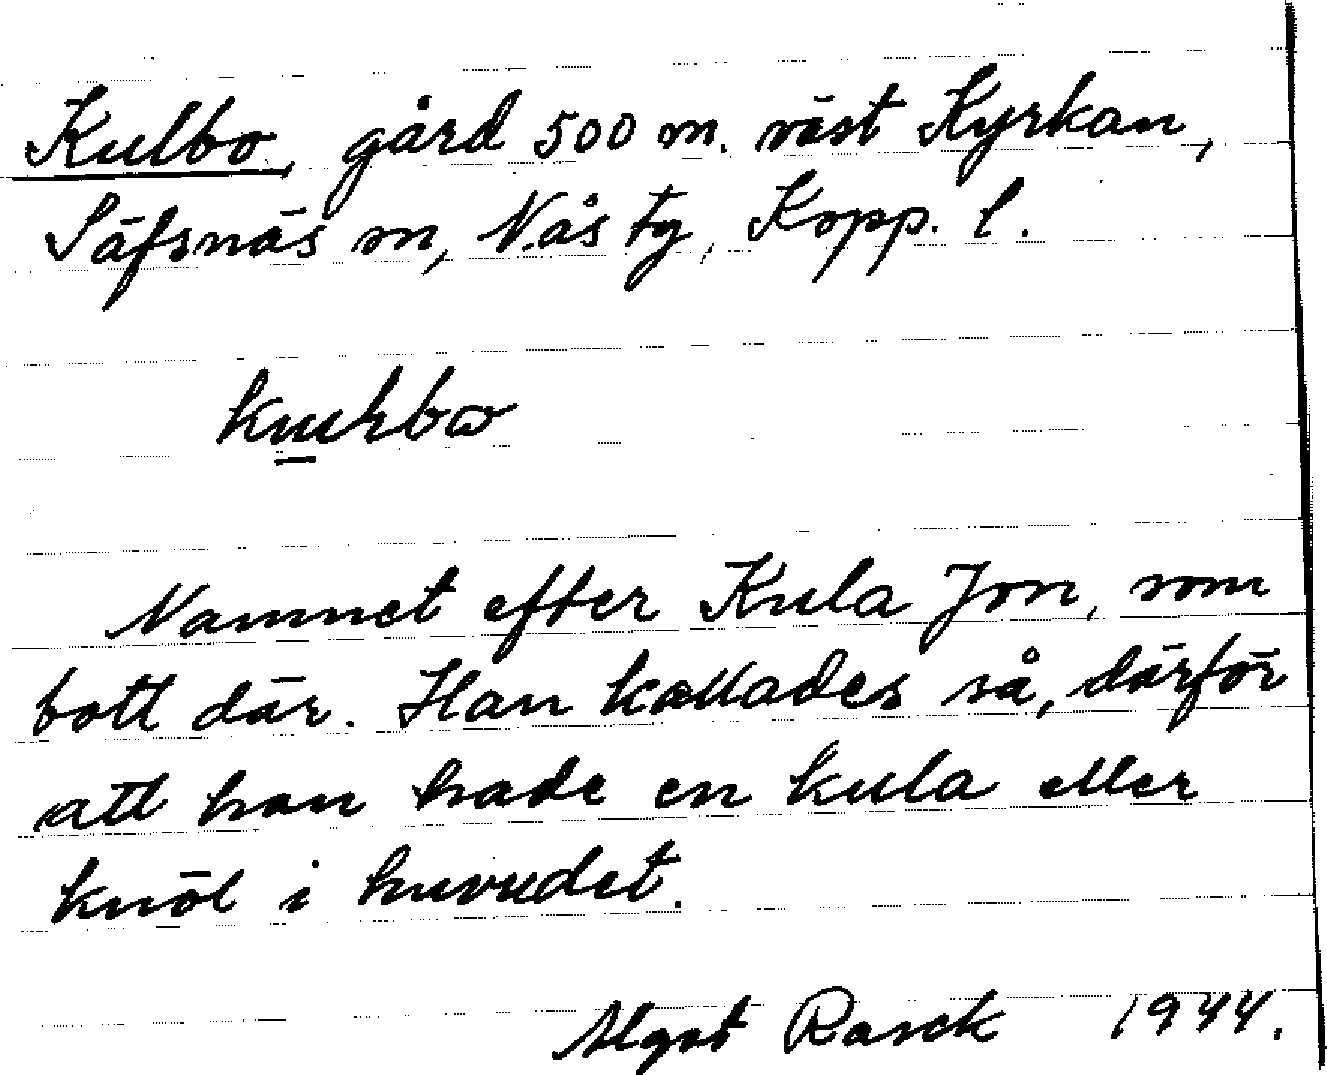 Kulbo, gård 500 m. väst Kyrkan,
Säfsnäs sn, Nås tg, Kopp. l.
Namnet efter Kula Jon, som
bott där. Han kallades så, därför
att han hade en kula eller
knöl i huvudet.
Algot Rasck 1944.